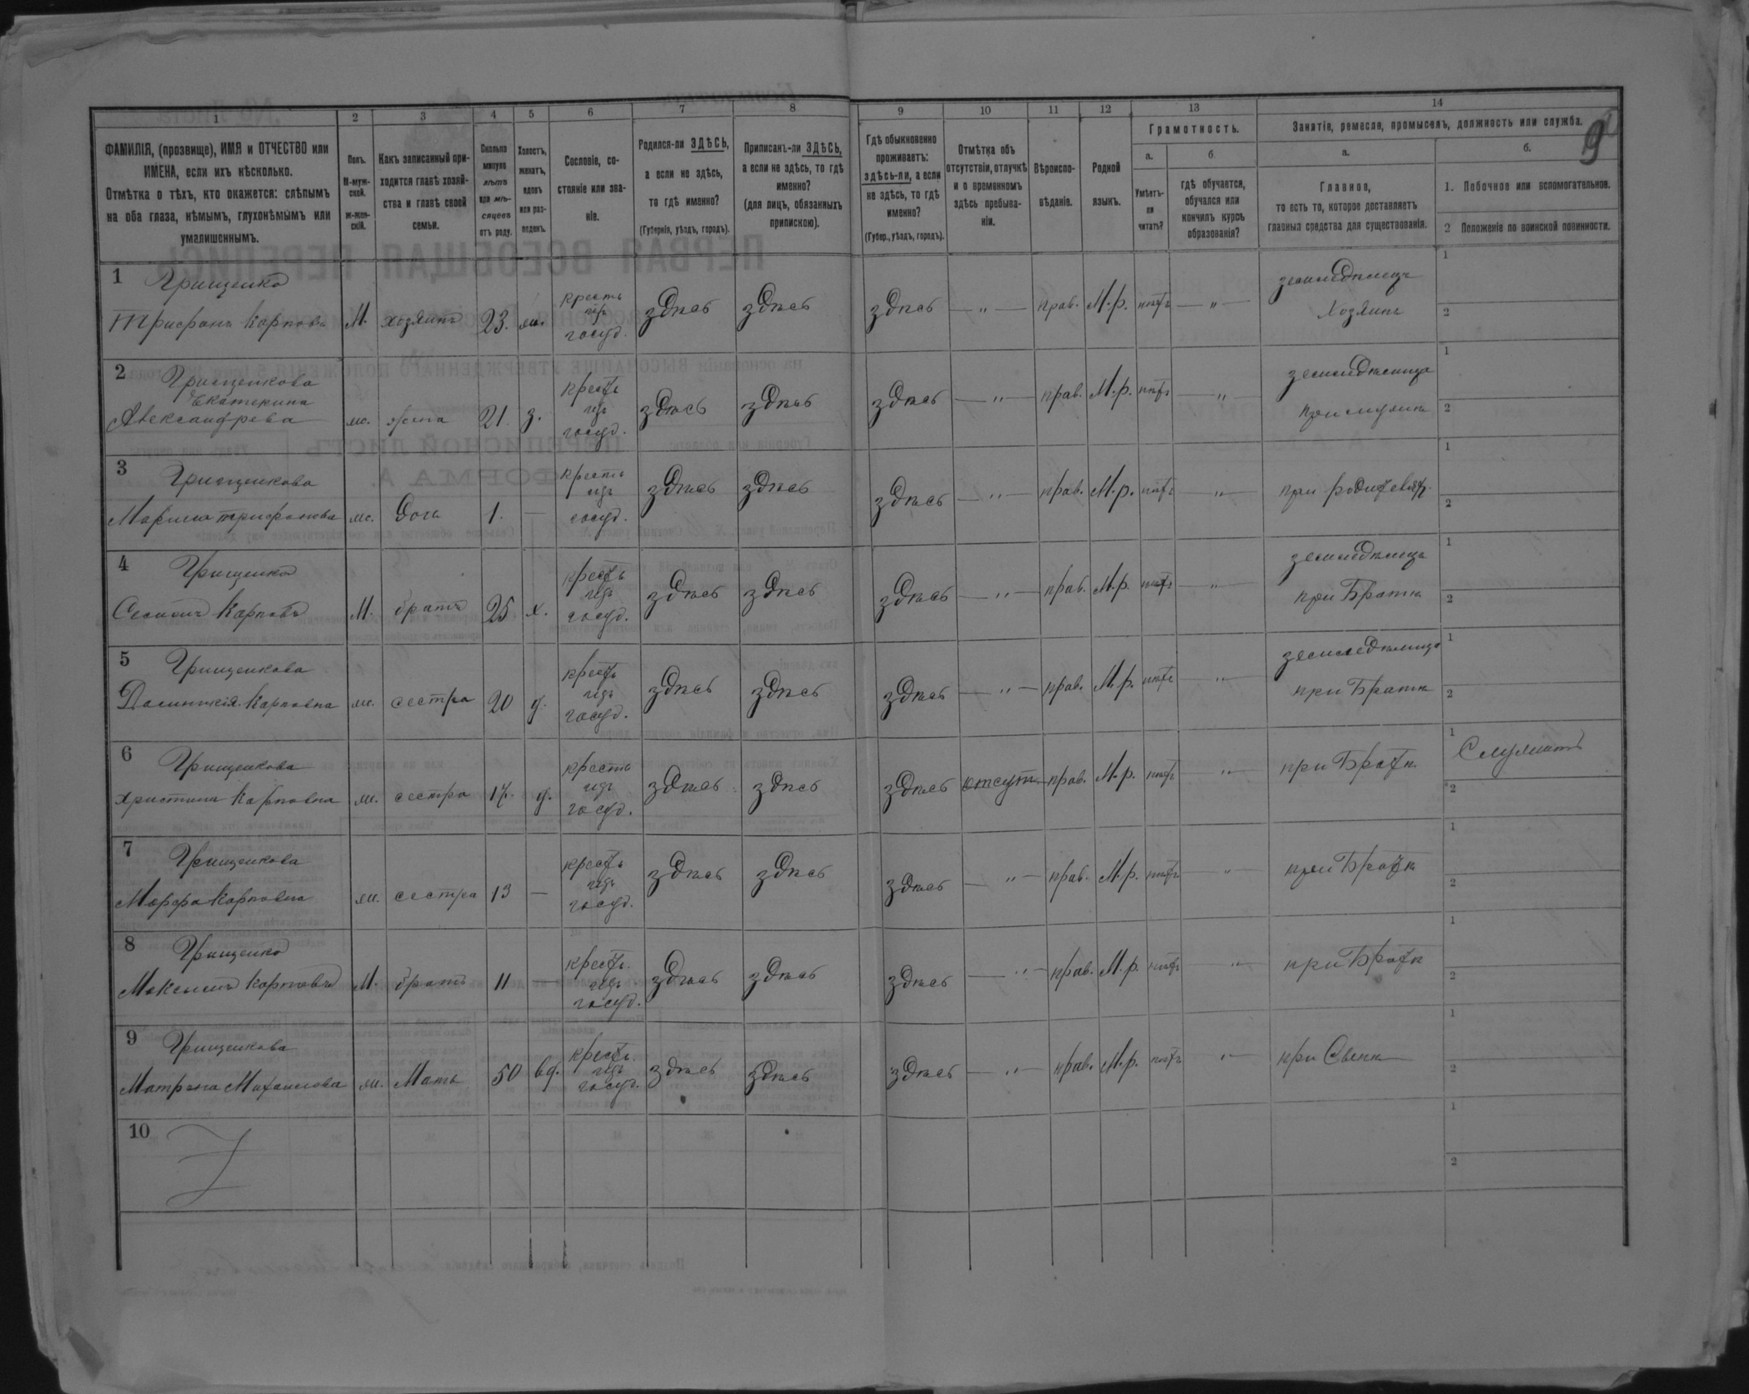 1 2 3 4 5 6 7 8 9 10 11 12 13 14
ФАМИЛІЯ, (прозвище), ИМЯ и ОТЧЕСТВО или
ИМЕНА, если ихъ нѣсколько.
Отмѣтка о тѣхъ, кто окажется: слѣпымъ
на оба глаза, нѣмымъ, глухонѣмымъ или
умалишеннымъ.
Полъ.
М-муж-
ской.
ж-жен-
скій.
Какъ записанный при-
ходится главѣ хозяй-
ства и главѣ своей
семьи.
Сколько
минуло
лѣтъ
или мѣ-
сяцевъ
отъ роду.
Холостъ,
женатъ,
вдовъ
или раз-
веденъ.
Сословіе, со-
стояніе или зва-
ніе.
Родился-ли ЗДѢСЬ,
а если не здѣсь,
то гдѣ именно?
(Губернія, уѣздъ, городъ).
Приписанъ-ли ЗДѢСЬ,
а если не здѣсь, то гдѣ
именно?
(для лицъ, обязанныхъ
припискою).
Гдѣ обыкновенно
проживаетъ:
здѣсь-ли, а если
не здѣсь, то гдѣ
именно?
(Губер., уѣздъ, городъ).
Отмѣтка объ
отсутствіи, отлучкѣ
и о временномъ
здѣсь пребыва-
ніи.
Вѣроиспо-
вѣданіе.
Родной
языкъ.
Грамотность.
а. б.
Умѣетъ-
ли
читать?
гдѣ обучается,
обучался или
кончилъ курсъ
образованія?
Занятіе, ремесло, промыселъ, должность или служба.
9
а. б.
Главное,
то есть то, которое доставляетъ
главныя средства для существованія.
1. Побочное или вспомогательное.
2 Положеніе по воинской повинности.
1 Грищенко
Трифонъ Карповъ М. хозяинъ 23. жен. крестъ изъ госуд. здѣсь здѣсь здѣсь — „ — прав. М.р. нѣтъ — „ — земледѣлецъ Хозяинъ 1 2
2 Грищенкова
Екатерина
Александрова ж. жена 21. з. крестъ изъ госуд. здѣсь здѣсь здѣсь — „ — прав. М.р. нѣтъ — „ — земледѣлица при мужѣ 1 2
3 Грищенкова
Марина Трифонова ж. дочь 1. — крестъ изъ госуд. здѣсь здѣсь здѣсь — „ — прав. М.р. нѣтъ — „ — при родителях 1 2
4 Грищенко
Семенъ Карповъ М. братъ 25 х. крестъ изъ госуд. здѣсь здѣсь здѣсь — „ — прав. М.р. нѣтъ — „ — земледѣлецъ при Братѣ 1 2
5 Грищенкова
Карповна ж. сестра 20 д. крестъ изъ госуд. здѣсь здѣсь здѣсь — „ — прав. М.р. нѣтъ — „ — земледѣлица при Братѣ 1 2
6 Грищенкова
Христина Карповна ж. сестра 17. д. крестъ изъ госуд. здѣсь здѣсь здѣсь отсут. прав. М.р. нѣтъ — „ — при Братѣ 1 Служитъ 2
7 Грищенкова
Марфа Карповна ж. сестра 13 — крестъ изъ госуд. здѣсь здѣсь здѣсь — „ — прав. М.р. нѣтъ — „ — при Братѣ 1 2
8 Грищенко
Максимъ Карповъ М. братъ 11 — крестъ. изъ госуд. здѣсь здѣсь здѣсь — „ — прав. М.р. нѣтъ — „ — при Братѣ 1 2
9 Грищенкова
Матрена Михаилова ж. Мать 50 вд. крестъ. изъ госуд. здѣсь здѣсь здѣсь — „ — прав. М.р. нѣтъ — „ — при Сынѣ 1 2
10 1 2